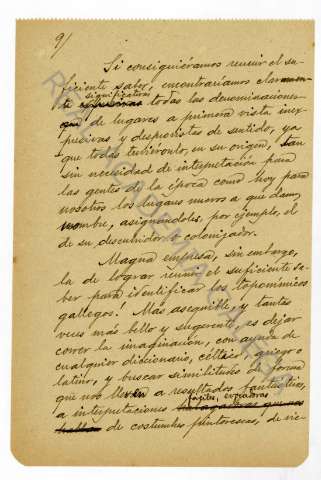 9/
Si consiguiéramos reunir el su-
ficiente saber, encontraríamos claramen-
te significativas todas las denominaciones
de lugares a primera vista inex-
presivas y desprovistas de sentido, ya
que todas tubieronlo, en su origen, tan
sin necesidad de interpretación para
las gentes de la época como hoy para
nosotros los lugares nuevos a que damos
nombre, asignándoles, por ejemplo, el
de su descubridor o colonizador.
Magna empresa, sin embargo,
la de lograr reunir el suficiente sa-
ber para identificar los toponímicos
gallegos. Más asequible, y tantas
veces más bello y sugerente, es dejar
correr la imaginación, con ayuda de
cualquier diccionario, céltico, griego o
latino, y buscar similitudes de forma
que nos lleven a resultados fantásticos,
a interpretaciones fáciles, creadoras
de costumbres pintorescas, de vie-